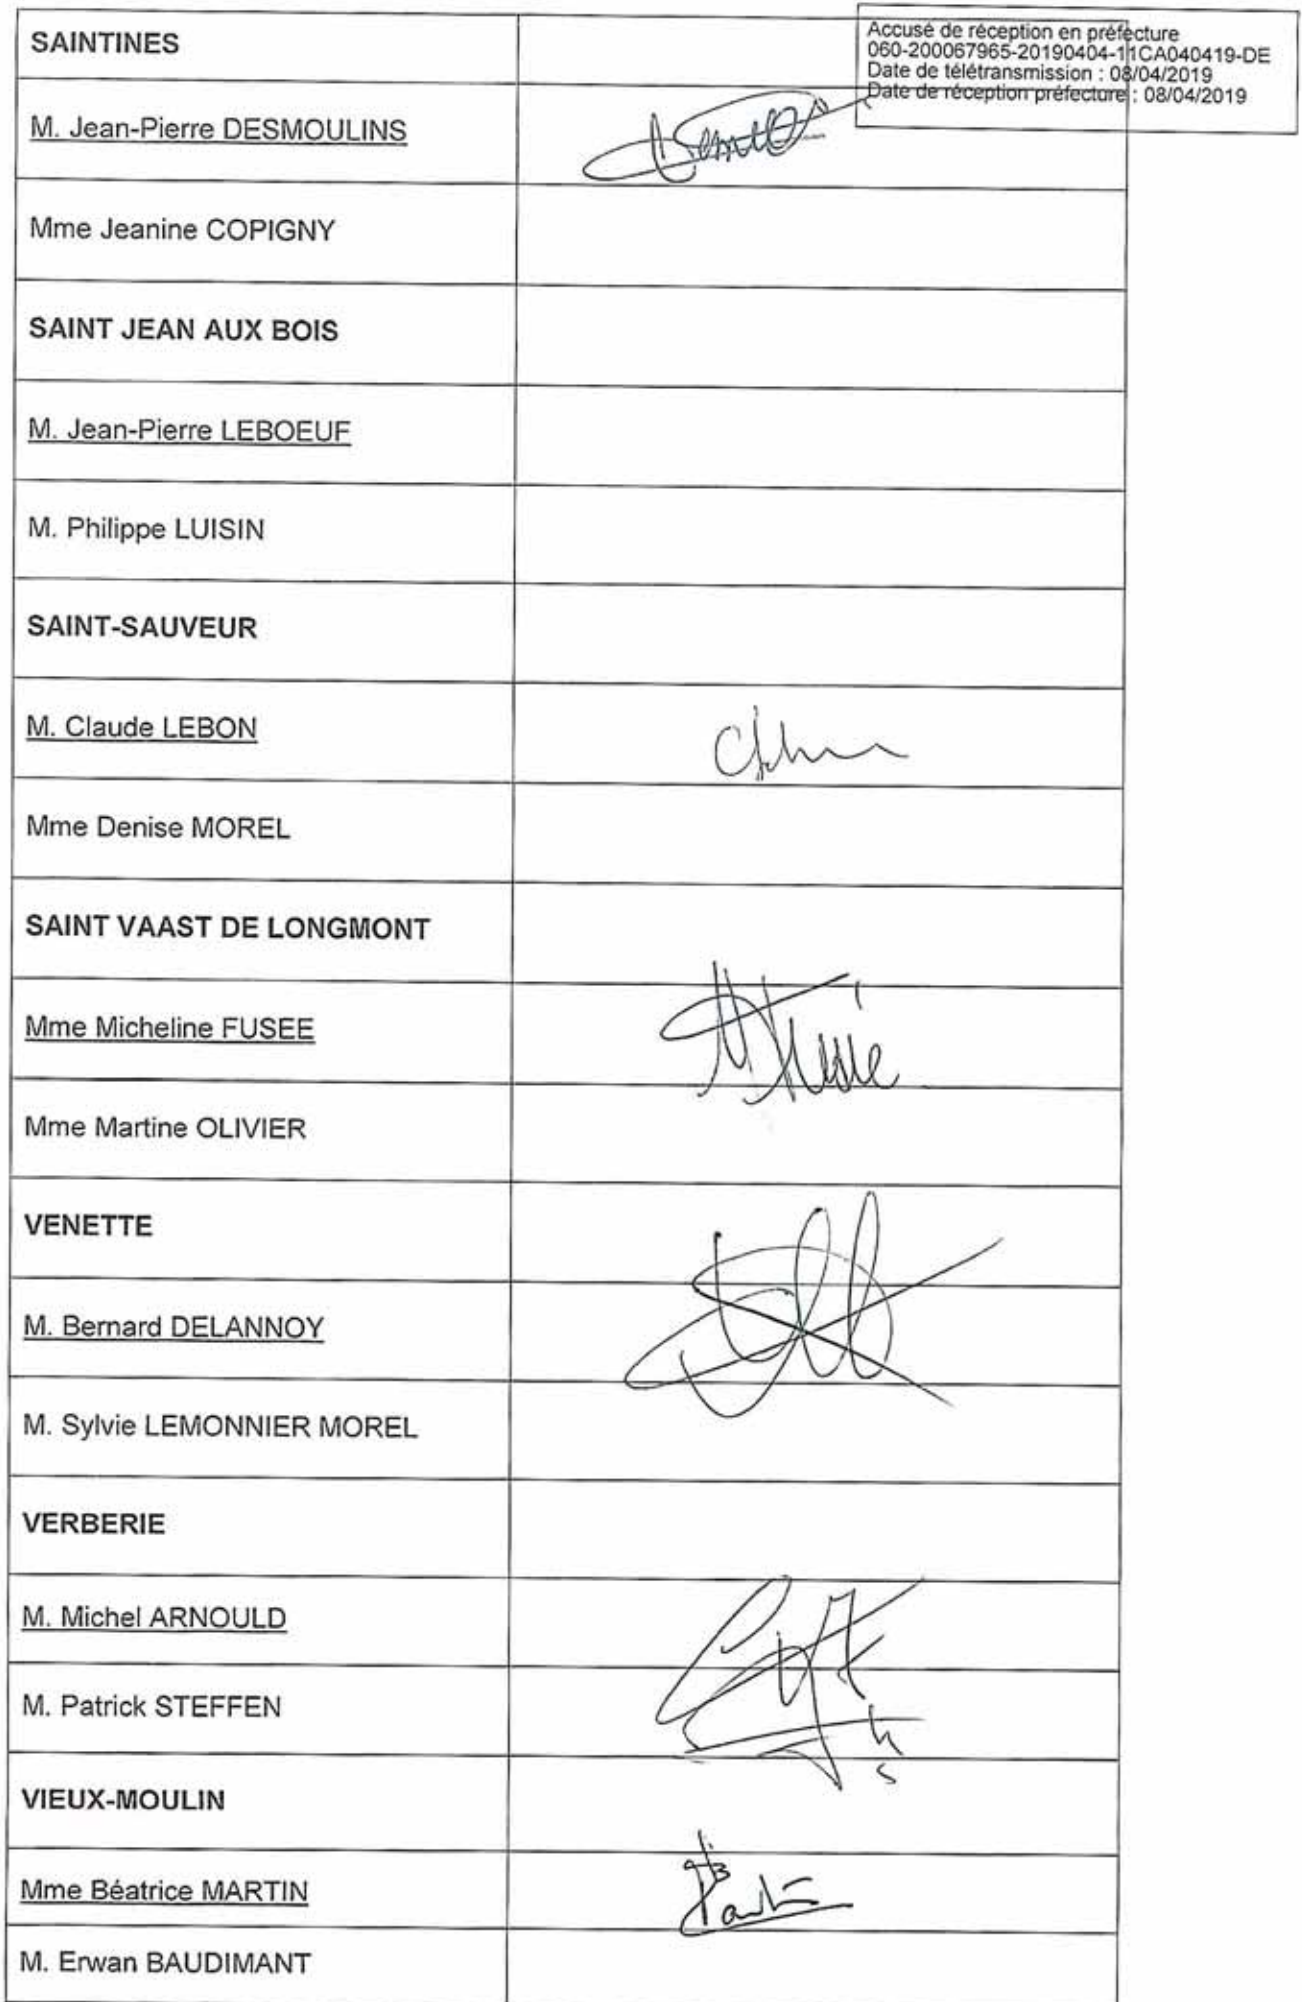 SAINTINES
Accusé de réception en préfecture
060-200067965-20190404-11CA040419-DE
Date de télétransmission : 08/04/2019
Date de réception préfecture : 08/04/2019
M. Jean-Pierre DESMOULINS
Mme Jeanine COPIGNY
SAINT JEAN AUX BOIS
M. Jean-Pierre LEBOEUF
M. Philippe LUISIN
SAINT-SAUVEUR
M. Claude LEBON
Mme Denise MOREL
SAINT VAAST DE LONGMONT
Mme Micheline FUSEE
Mme Martine OLIVIER
VENETTE
M. Bernard DELANNOY
M. Sylvie LEMONNIER MOREL
VERBERIE
M. Michel ARNOULD
M. Patrick STEFFEN
VIEUX-MOULIN
Mme Béatrice MARTIN
M. Erwan BAUDIMANT